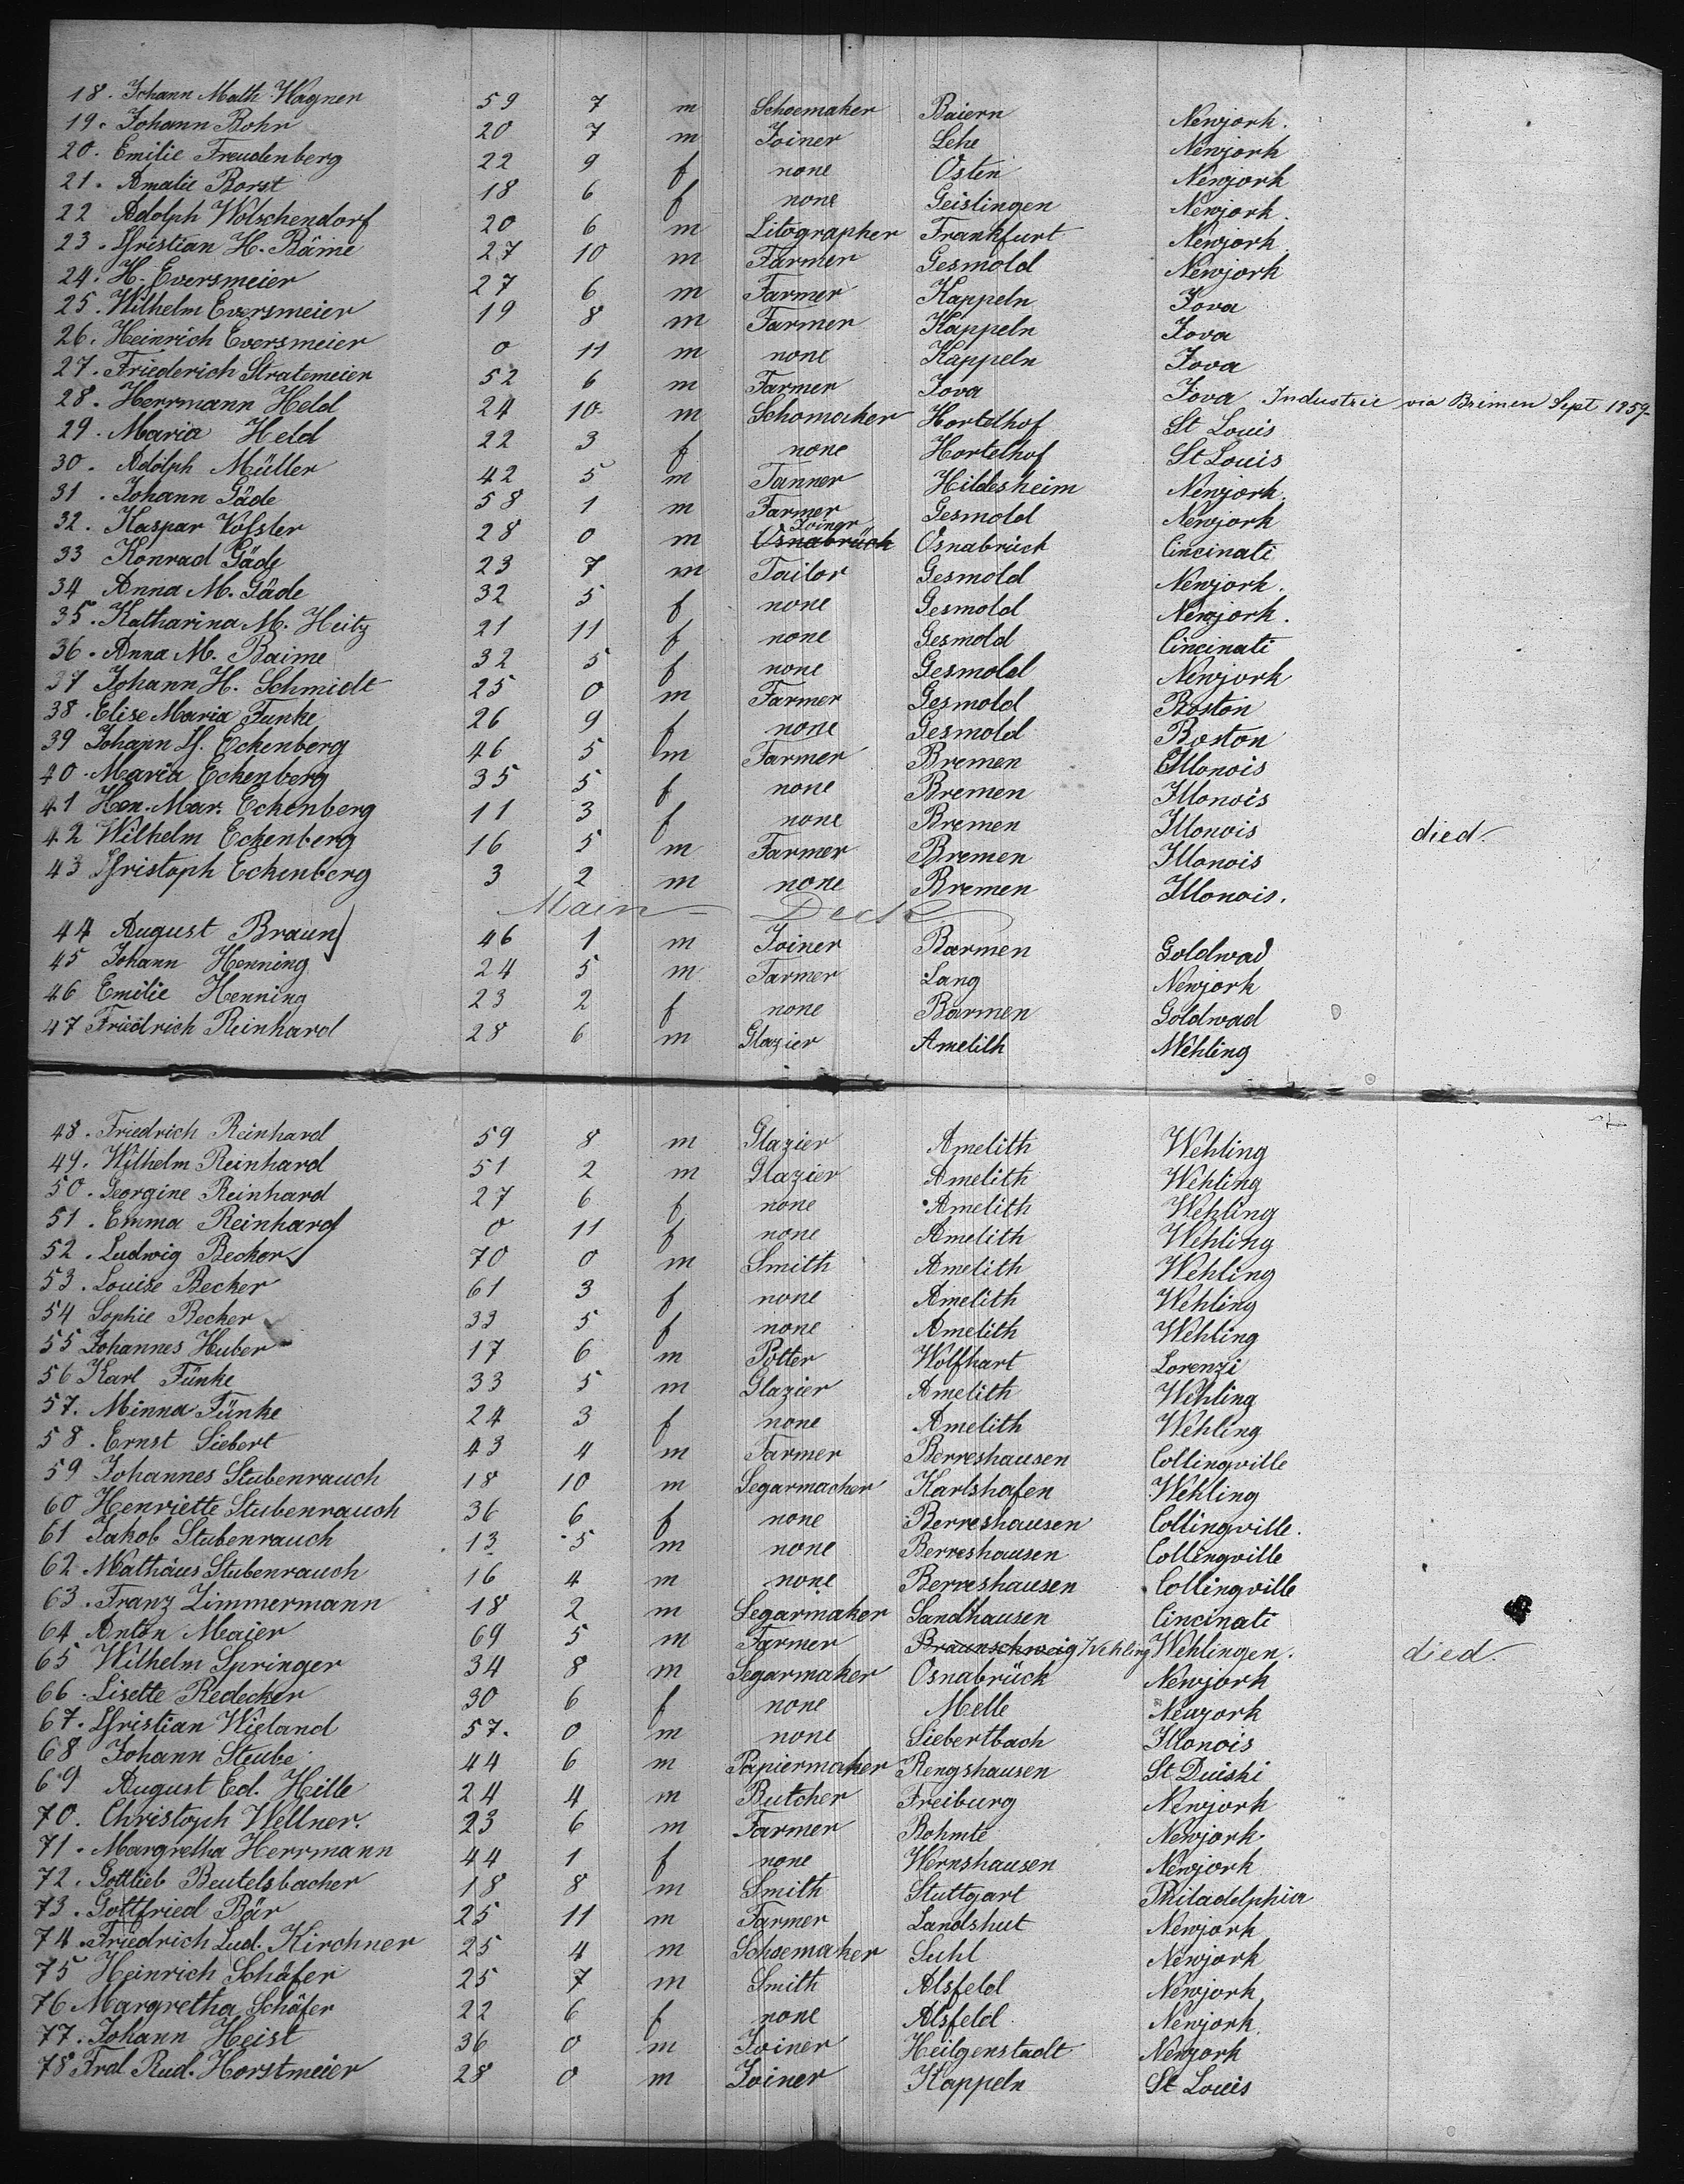 18. Johann Math. Wagner 59 7 m Schoemaker Baiern Newjork.
19. Johann Bohr 20 7 m Joiner Lehe Newjork
20. Emilie Freudenberg 22 9 f none Osten Newjork
21. Amalie Borst 18 6 f none Geislingen Newjork.
22 Adolph Wolschendorf 20 6 m Litographer Frankfurt Newjork
23. Christian H. Bäme 27 10 m Farmer Gesmold Newjork
24. H. Eversmeier 27 6 m Farmer Kappeln Jova
25. Wilhelm Eversmeier 19 8 m Farmer Kappeln Jova
26. Heinrich Eversmeier 0 11 m none Kappeln Jova
27. Friederich Stratemeier 52 6 m Farmer Jova Jova Industrie via Bremen Sept 1859
28. Herrmann Held 24 10 m Schomaker Hortelhof St Louis
29. Maria Held 22 3 f none Hortelhof St Louis
30. Adolph Müller 42 5 m Tanner Hildesheim Newjork.
31. Johann Gäde 58 1 m Farmer Gesmold Newjork
32. Kaspar 28 0 m Osnabrück Joiner Osnabrück Cincinati
33 Konrad Gäde 23 7 m Tailor Gesmold Newjork.
34 Anna M. Gäde 32 5 f none Gesmold Newjork.
35. Katharina M. Heitz 21 11 f none Gesmold Cincinati
36. Anna M. Baime 32 5 f none Gesmold Newjork
37 Johann H. Schmidt 25 0 m Farmer Gesmold Boston
38. Elise Maria Funke 26 9 f none Gesmold Boston
39 Johann Ch. Eckenberg 46 5 m Farmer Bremen Illonois
40. Maria Eckenberg 35 5 f none Bremen Illonois
41 Hen. Mar. Eckenberg 11 3 f none Bremen Illonois died.
42 Wilhelm Eckenberg 16 5 m Farmer Bremen Illonois
43 Christoph Eckenberg 3 2 m none Bremen Illonois.
Main-Deck
44 August Braun 46 1 m Joiner Barmen Goldwad
45 Johann Henning 24 5 m Farmer Lang Newjork
46 Emilie Henning 23 2 f none Barmen Goldwad
47 Friedrich Reinhard 28 6 m Glazier Amelith Wehling
48. Friedrich Reinhard 59 8 m Glazier Amelith Wehling
49. Wilhelm Reinhard 51 2 m Glazier Amelith Wehling
50. Georgine Reinhard 27 6 f none Amelith Wehling
51. Emma Reinhard 0 11 f none Amelith Wehling
52. Ludwig Becker 70 0 m Smith Amelith Wehling
53. Louise Becker 61 3 f none Amelith Wehling
54 Sophie Becker 33 5 f none Amelith Wehling
55 Johannes Huber 17 6 m Potter Wolfhart Lorenzi
56 Karl Fünke 33 5 m Glazier Amelith Wehling
57. Minna Fünke 24 3 f none Amelith Wehling
58. Ernst Siebert 43 4 m Farmer Berreshausen Collingville
59 Johannes Stubenrauch 18 10 m Segarmacher Karlshafen Wehling
60 Henriette Stubenrauch 36 6 f none Berreshausen Collingville.
61 Jakob Stubenrauch 13 5 m none Berreshausen Collingville
62 Mathäus Stubenrauch 16 4 m none Berreshausen Collingville
63. Franz Zimmermann 18 2 m Segarmaker Sandhausen Cincinati
64 Anton Maier 69 5 m Farmer Braunschweig Wehling Wehlingen. died.
65 Wilhelm Springer 34 8 m Segarmaker Osnabrück Newjork
66. Lisette Redecker 30 6 f none Melle Newjork
67. Christian Wieland 57. 0 m none Siebertbach Illonois
68 Johann Steube 44 6 m Papiermaker Rengshausen St Duiski
69 August Ed. Hille 24 4 m Butcher Freiburg Newjork
70. Christoph Wellner. 23 6 m Farmer Bohmte Newjork
71. Margretha Herrmann 44 1 f none Wernshausen Newjork
72. Gottlieb Beutelsbacher 18 8 m Smith Stuttgart Philadelphia
73. Gottfried Bär 25 11 m Farmer Landshut Newjork
74. Friedrich Lud. Kirchner 25 4 m Schoemaker Suhl Newjork
75 Heinrich Schäfer 25 7 m Smith Alsfeld Newjork
76 Margretha Schäfer 22 6 f none Alsfeld Newjork.
77. Johann Heist 36 0 m Joiner Heilgenstadt Newjork
78 Frd. Rud. Horstmeier 28 0 m Joiner Kappeln St Louis